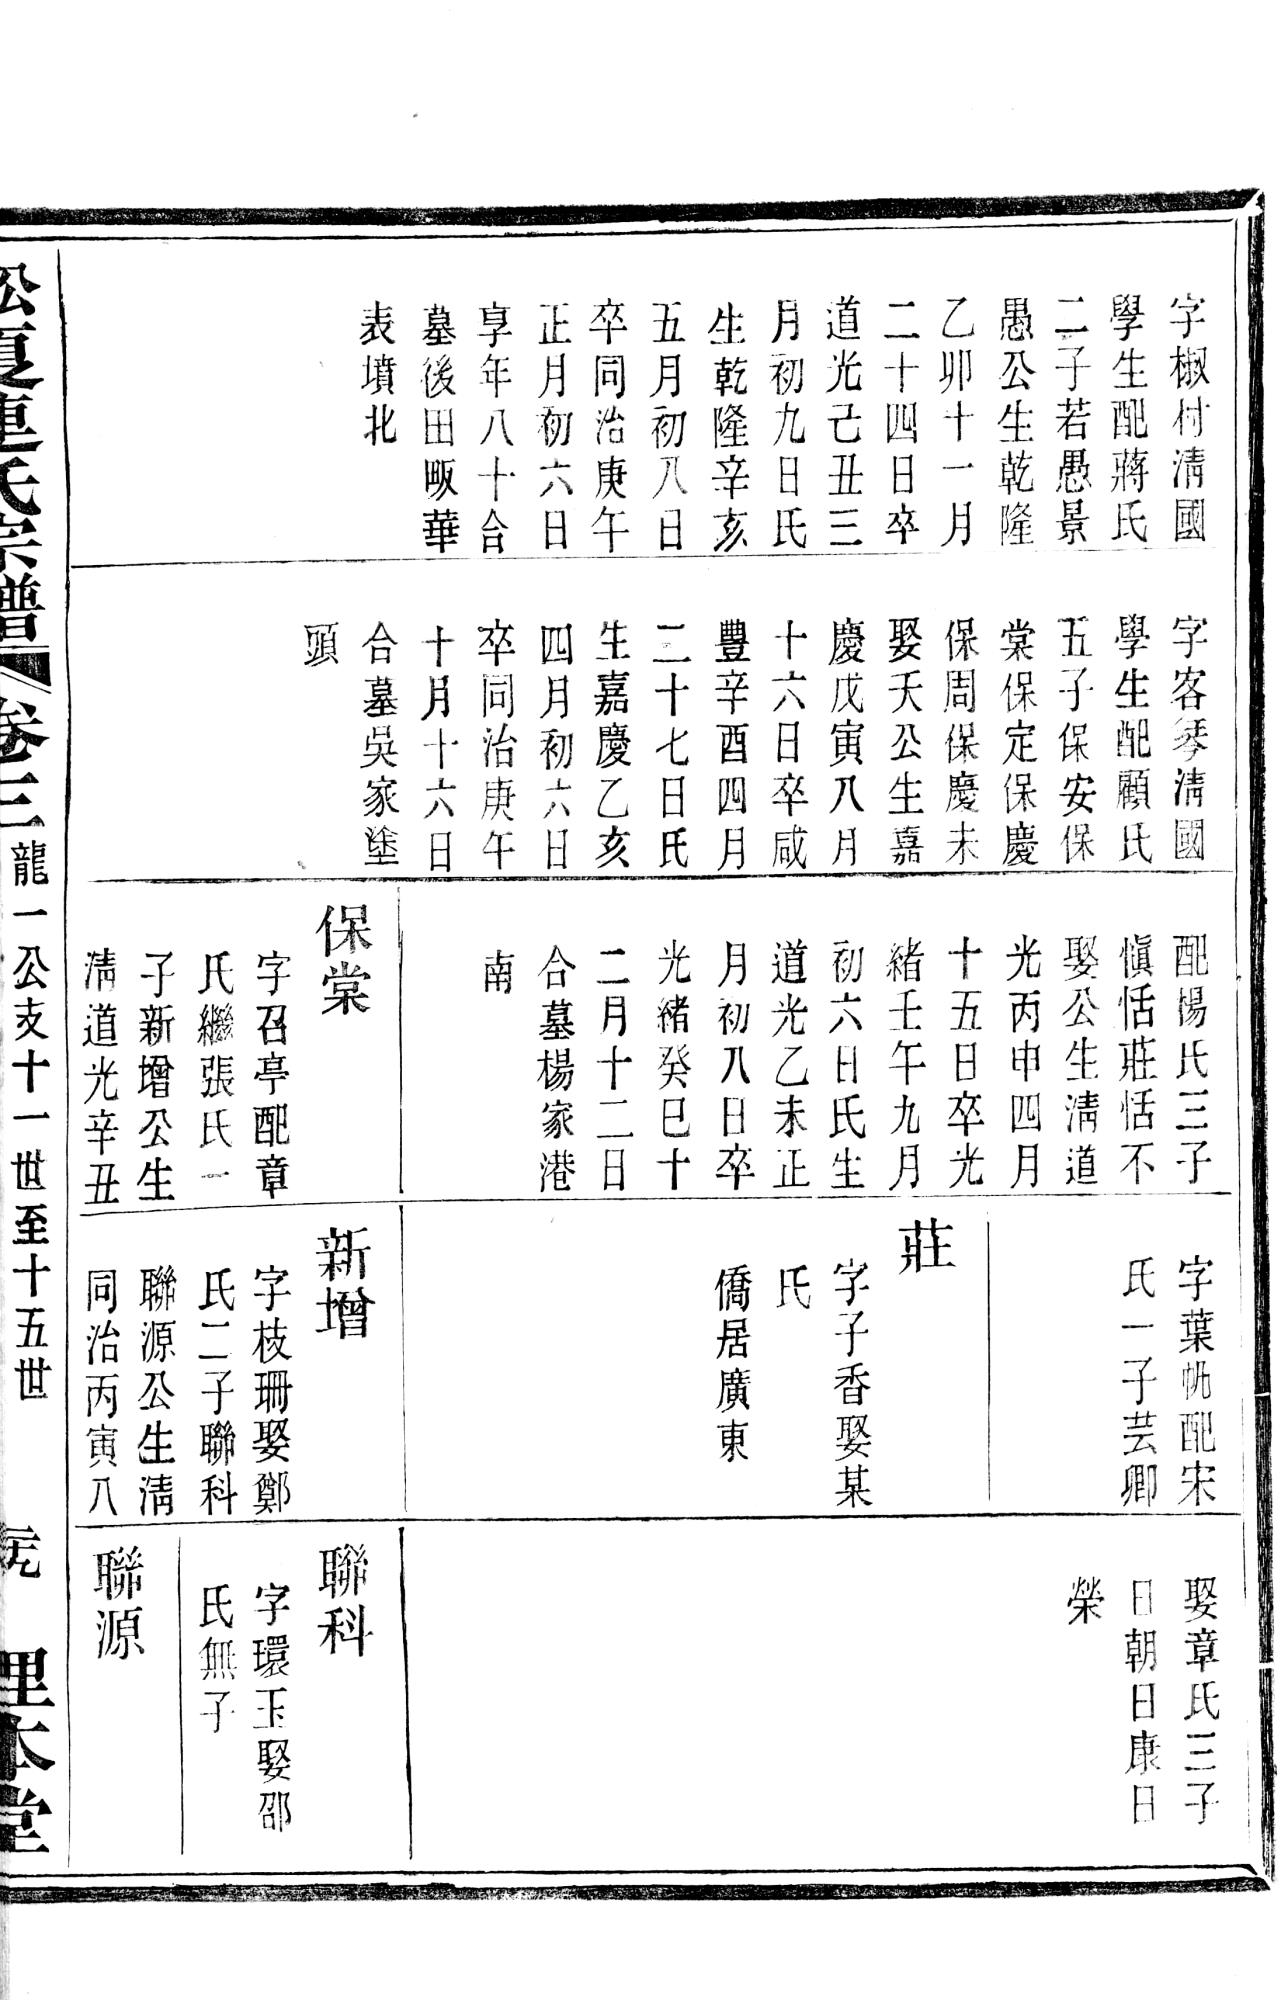 字椒村清國
學生配蔣氏
二子若愚景
愚公生乾隆
乙卯十一月
二十四日卒
道光己丑三
月初九日氏
生乾隆辛亥
五月初八日
卒同治庚午
正月初六日
享年八十合
墓後田畈華
表墳北
字客琴清國
學生配顧氏
五子保安保
棠保定保慶
保周保慶未
娶夭公生嘉
慶戊寅八月
十六日卒咸
豐辛酉四月
二十七日氏
生嘉慶乙亥
四月初六日
卒同治庚午
十月十六日
合墓吳家塋
頭
配楊氏三子
愼恬莊恬不
娶公生清道
光丙申四月
十五日卒光
緒壬午九月
初六日氏生
道光乙未正
月初八日卒
光緒癸巳十
二月十二日
合墓楊家港
南
保棠
字召亭配章
氏繼張氏一
子新增公生
清道光辛丑
字葉帆配宋
氏一子芸卿
莊
字子香娶某
氏
僑居廣東
新增
字枝珊娶鄭
氏二子聯科
聯源公生清
同治丙寅八
娶章氏三子
日朝日康日
榮
聯科
字環玉娶邵
氏無子
聯源
松夏連氏宗譜 卷三 龍一公支十一世至十五世 理本堂